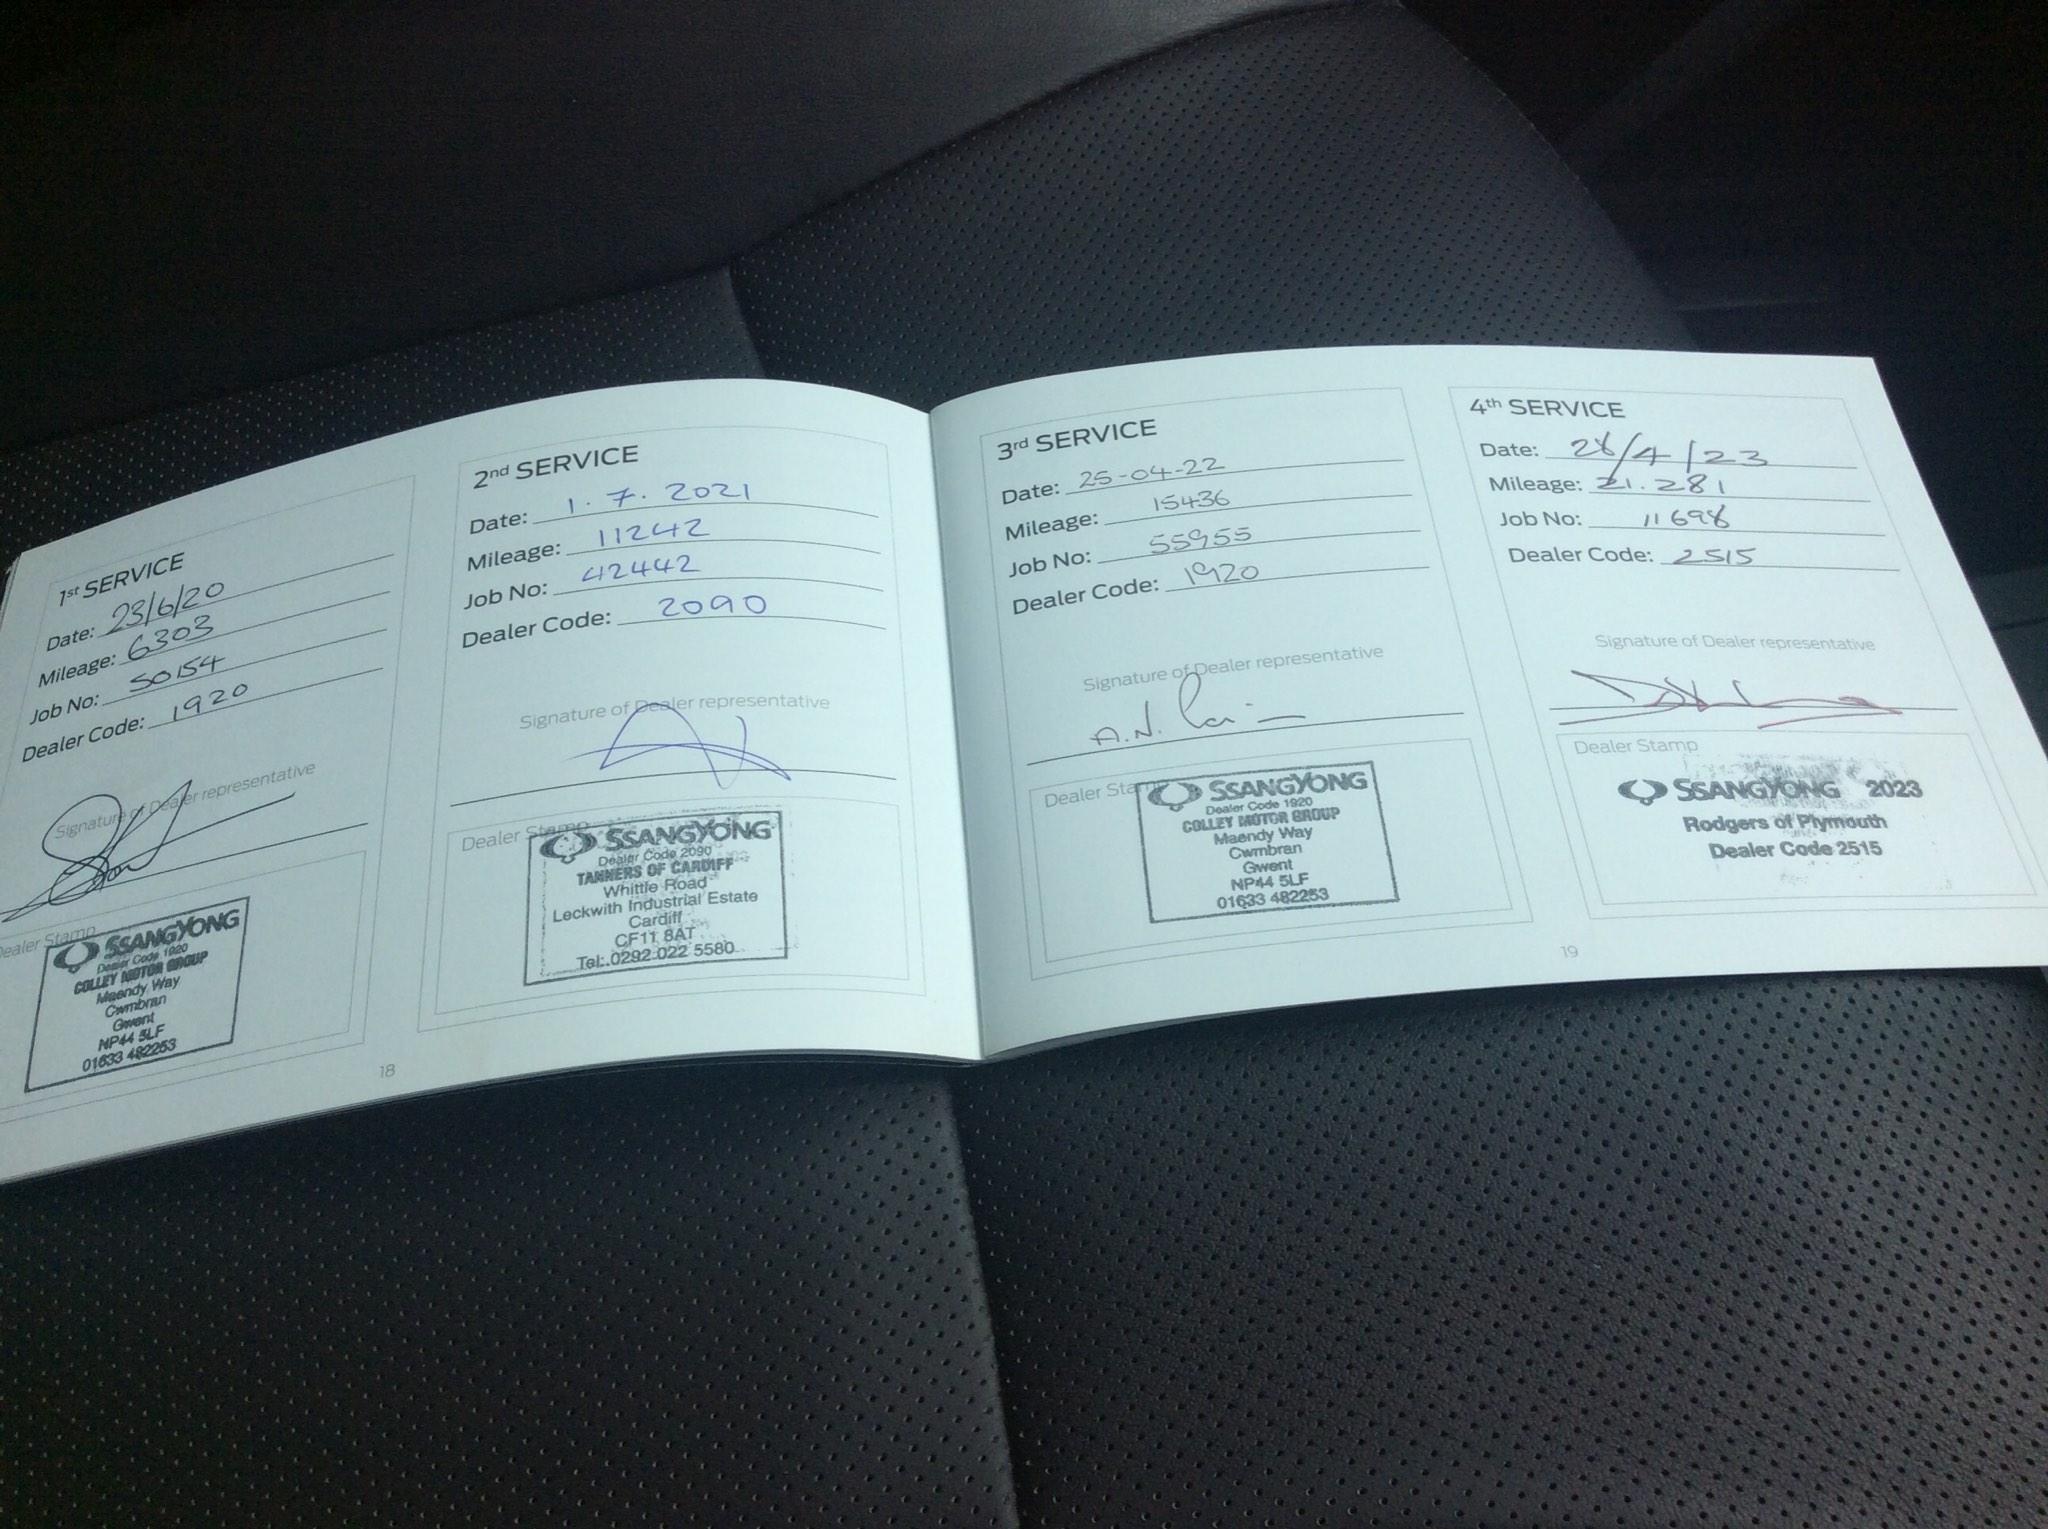 1st SERVICE
Date: 23/6/20
Mileage: 6303
Job No: 50154
Dealer Code: 1920
Signature of Dealer representative
Dealer Stamp
SSANGYONG
Dealer Code 1920
COLLEY MOTOR GROUP
Maendy Way
Cwmbran
Gwent
NP44 5LF
01633 482253
18
2nd SERVICE
Date: 1.7.2021
Mileage: 11242
Job No: 42442
Dealer Code: 2090
Signature of Dealer representative
Dealer Stamp
SSANGYONG
Dealer Code 2090
TANNERS OF CARDIFF
Whittle Road
Leckwith Industrial Estate
Cardiff
CF11 8AT
Tel: 0292 022 5580
3rd SERVICE
Date: 25-04-22
Mileage: 15436
Job No: 55955
Dealer Code: 1920
Signature of Dealer representative
A.N.
Dealer Stamp
SSANGYONG
Dealer Code 1920
COLLEY MOTOR GROUP
Maendy Way
Cwmbran
Gwent
NP44 5LF
01633 482253
4th SERVICE
Date: 28/4/23
Mileage: 21.281
Job No: 11698
Dealer Code: 2515
Signature of Dealer representative
Dealer Stamp
SSANGYONG 2023
Rodgers of Plymouth
Dealer Code 2515
19